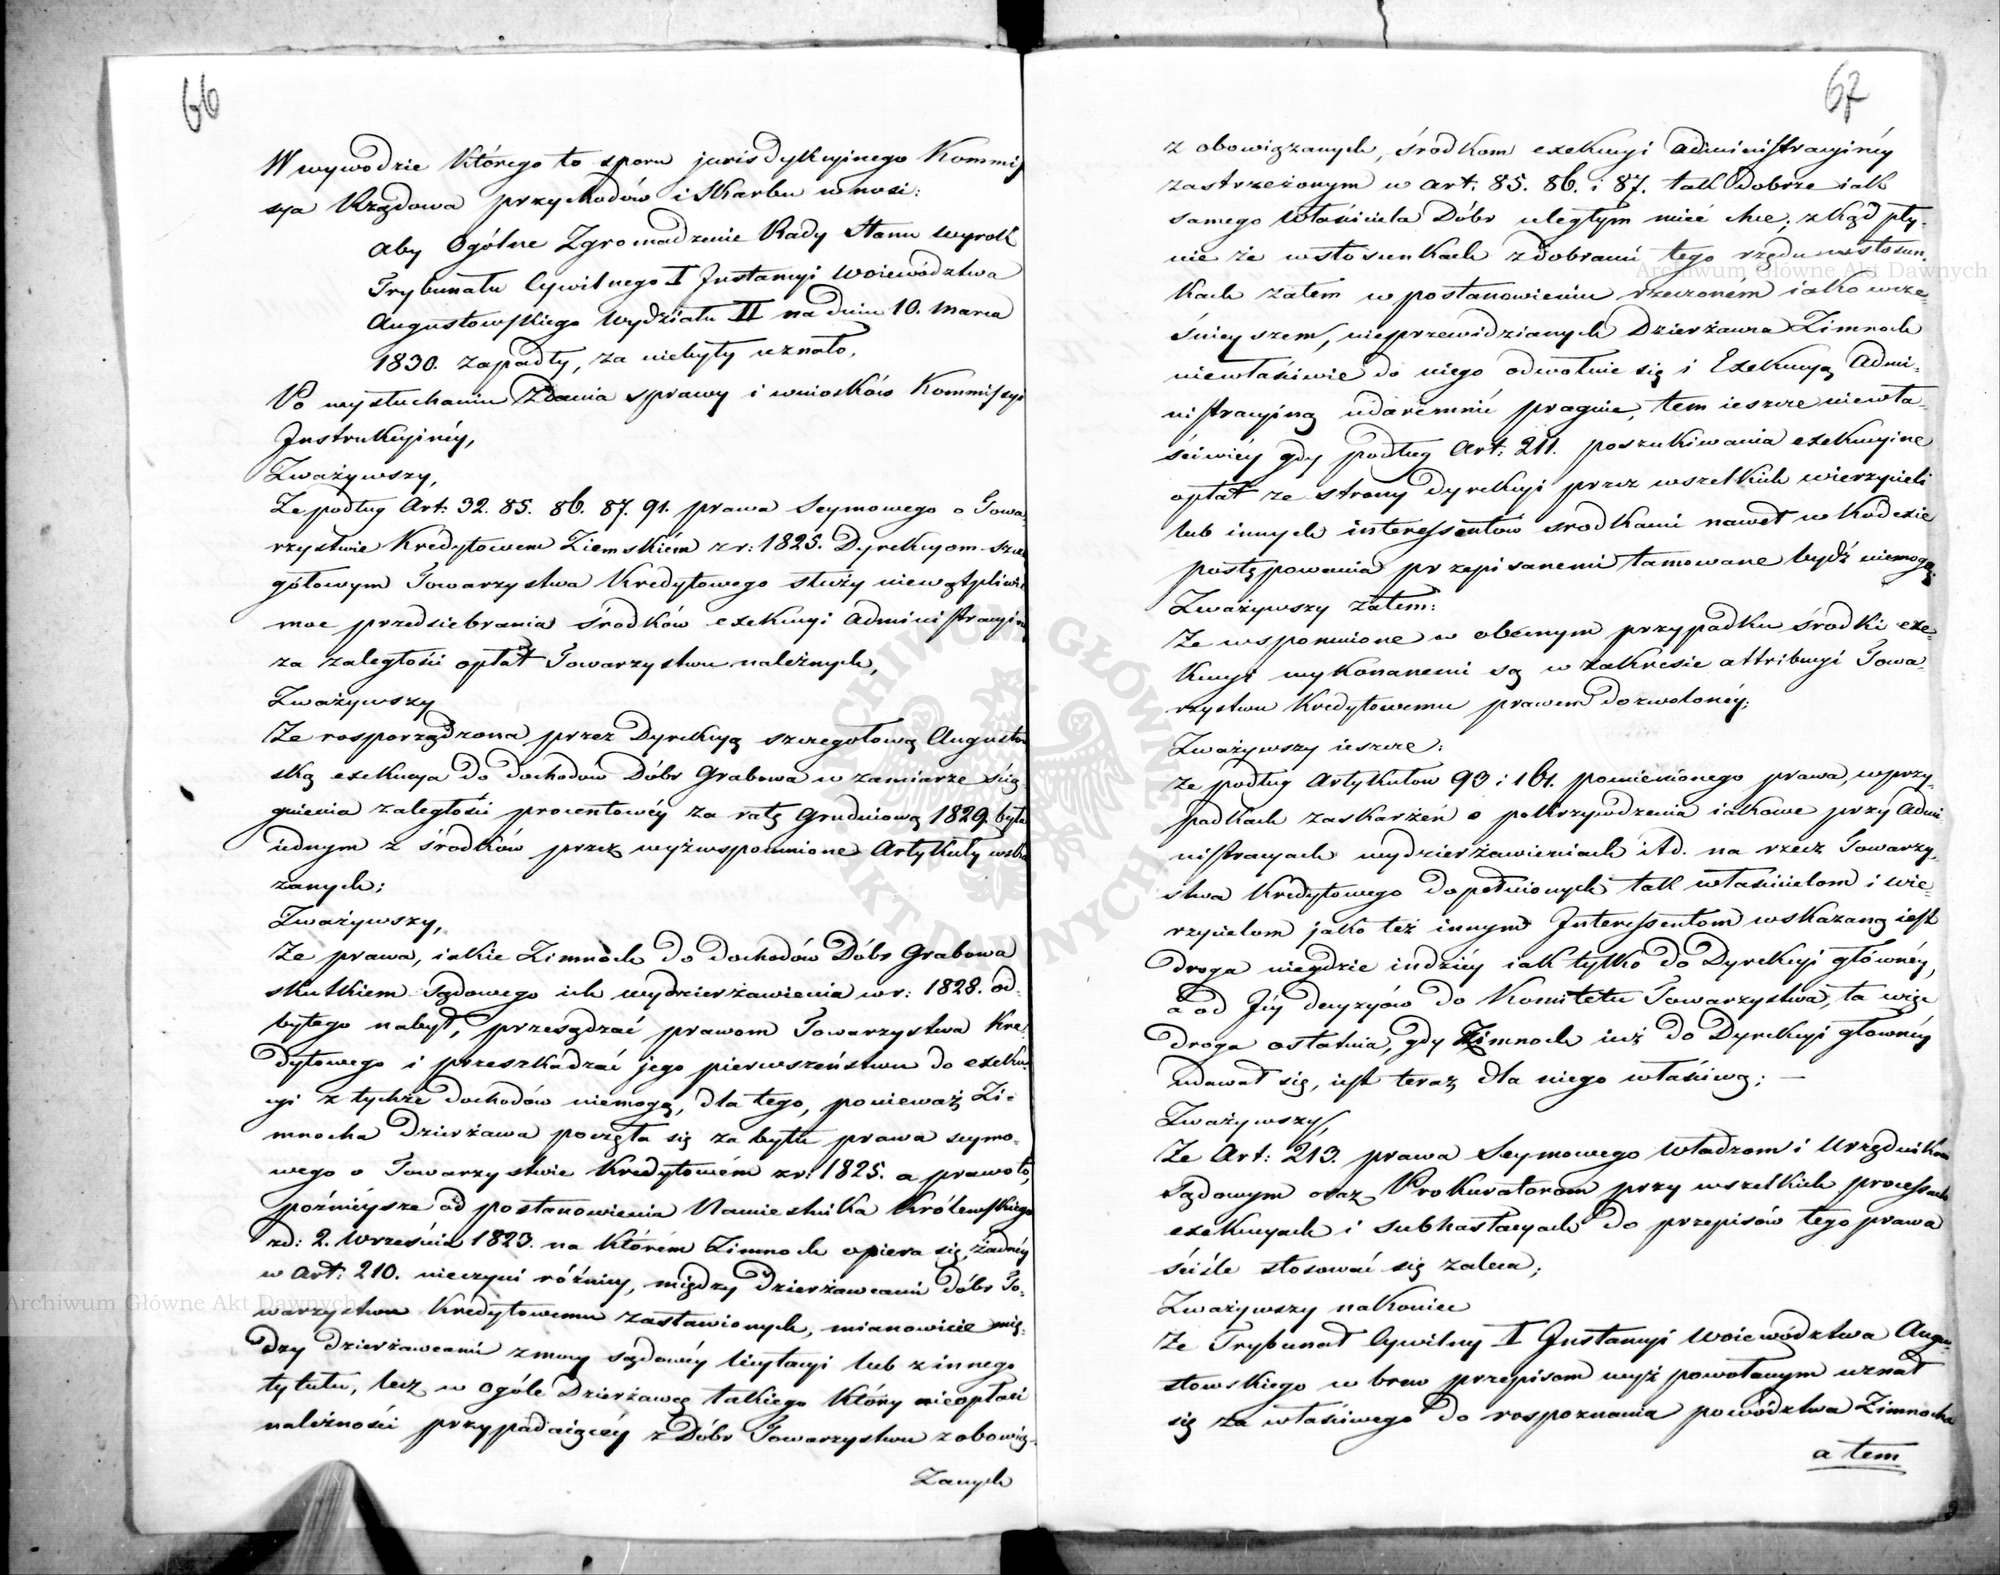 66
W wywodzie którego to sporu jurisdykcyinego Kommis
sya Rządowa przychodów i Skarbu wnosi:
aby Ogólne Zgromadzenie Rady Stanu wyrok
Trybunału Cywilnego I Instancyi Woiewództwa
Augustowskiego Wydziału II na dniu 10. Marca
1830. zapadły, za niebyły uznało.
Po wysłuchaniu Zdania sprawy i wniosków Kommissyi
Instrukcyinéy,
Zważywszy,
Że podług Art: 32. 85. 86. 87. 91. prawa Seymowego o Towa-
rzystwie Kredytowem Ziemskiém z r: 1825. Dyrekcyom szcze
gółowym Towarzystwa Kredytowego służy niewątpliwie
moc przedsiebrania środków exekucyi Administracyin
za zaległości opłat Towarzystwu należnych,
Zważywszy
Że rosporządzona przez Dyrekcyą szczegołową Augustow
ską exekucya do dochodów Dóbr Grabowa w zamiarze ścią-
gnienia zaległości procentowéy za ratę Grudniową 1829. była
iednym z środków przez wyżwspomnione Artykuły wska
zanych;
Zważywszy,
Że prawa, iakie Zimnoch do dochodów Dóbr Grabowa
skutkiem Sądowego ich wydzierżawienia w r: 1828. od-
bytego nabył, przesądzać prawom Towarzystwa Kre-
dytowego i przeszkadzać jego pierwszeństwu do exeku-
cyi z tychże dochodów niemogą, dla tego, ponieważ Zi-
mnocha Dzierżawa poczęła się za bytu prawa seymo-
wego o Towarzystwie Kredytowém z r: 1825. a prawo to,
poźniéysze od postanowienia Namiestnika Królewskiego
z d: 2. Września 1823. na którém Zimnoch opiera się, żadnéy
w Art: 210. nieczyni różnicy, między Dzierżawcami dóbr To-
warzystwu Kredytowemu zastawionych, mianowicie mię-
dzy dzierżawcami z mocy sądowéy licytacyi lub z innego
tytułu, lecz w ogóle Dzierżawcę takiego który nieopłaci
należności przypadaiącéy z Dóbr Towarzystwu zobowią-
zanych
67
z obowiązanych, środkom exekucyi Administracyinéy
zastrzeżonym w art: 85. 86. i 87. tak dobrze iak
samego Właściciela Dóbr uległym mieć chce; zkąd pły-
nie że w stosunkach z dobrami tego rzędu w stosun-
kach zatem w postanowieniu rzeczoném iako wcze-
śnieyszem, nieprzewidzianych Dzierżawca Zimnoch
niewłaściwie do niego odwołuie się i Exekucyą Admi-
nistracyiną udaremnić pragnie, tem ieszcze niewła-
ściwiéy gdy podług Art: 211. poszukiwania exekucyine
opłat ze strony dyrekcyi przez wszelkich wierzycieli
lub innych interessentow srodkami nawet w Kodexie
postępowania przepisanemi tamowane bydź niemogą.
Zważywszy zatem:
Że wspomnione w obecnym przypadku środki exe
kucyi wykonanemi są w zakresie attribucyi Towa-
rzystwu Kredytowemu prawem dozwolonéy;
Zważywszy ieszcze:
Że podług Artykułow 93 i 161. pomienionego prawa, w przy-
padkach zaskarżeń o pokrzywdzenia iakowe przy Admi-
nistracyach wydzierżawieniach itd. na rzecz Towarzy-
stwa Kredytowego dopełnionych tak właścicielom i wie-
rzycielom jako też innym Interessentom wskazaną iest
droga niegdzie indziéy iak tylko do Dyrekcyi głównéy,
a od Jéy decyzyów do Komitetu Towarzystwa, ta więc
droga ostatnia, gdy Zimnoch iuż do Dyrekcyi głownéy
udawał się, iest teraz dla niego właściwą; —
Zważywszy,
Że Art: 213. prawa Seymowego władzom i Urzędnikom
Sądowym oraz Prokuratorom przy wszelkich processach
exekucyach i subhastacyach do przepisów tego prawa
ściśle stosować się zaleca;
Zważywszy nakoniec
Że Trybunał Cywilny I Instancyi Woiewództwa Augu-
stowskiego w brew przepisom wyż powołanym uznał
się za właściwego do rospoznania powództwa Zimnocha
a tem
Archiwum Główne Akt Dawnych
Archiwum Główne Akt Dawnych
ARCHIWUM GŁÓWNE AKT DAWNYCH